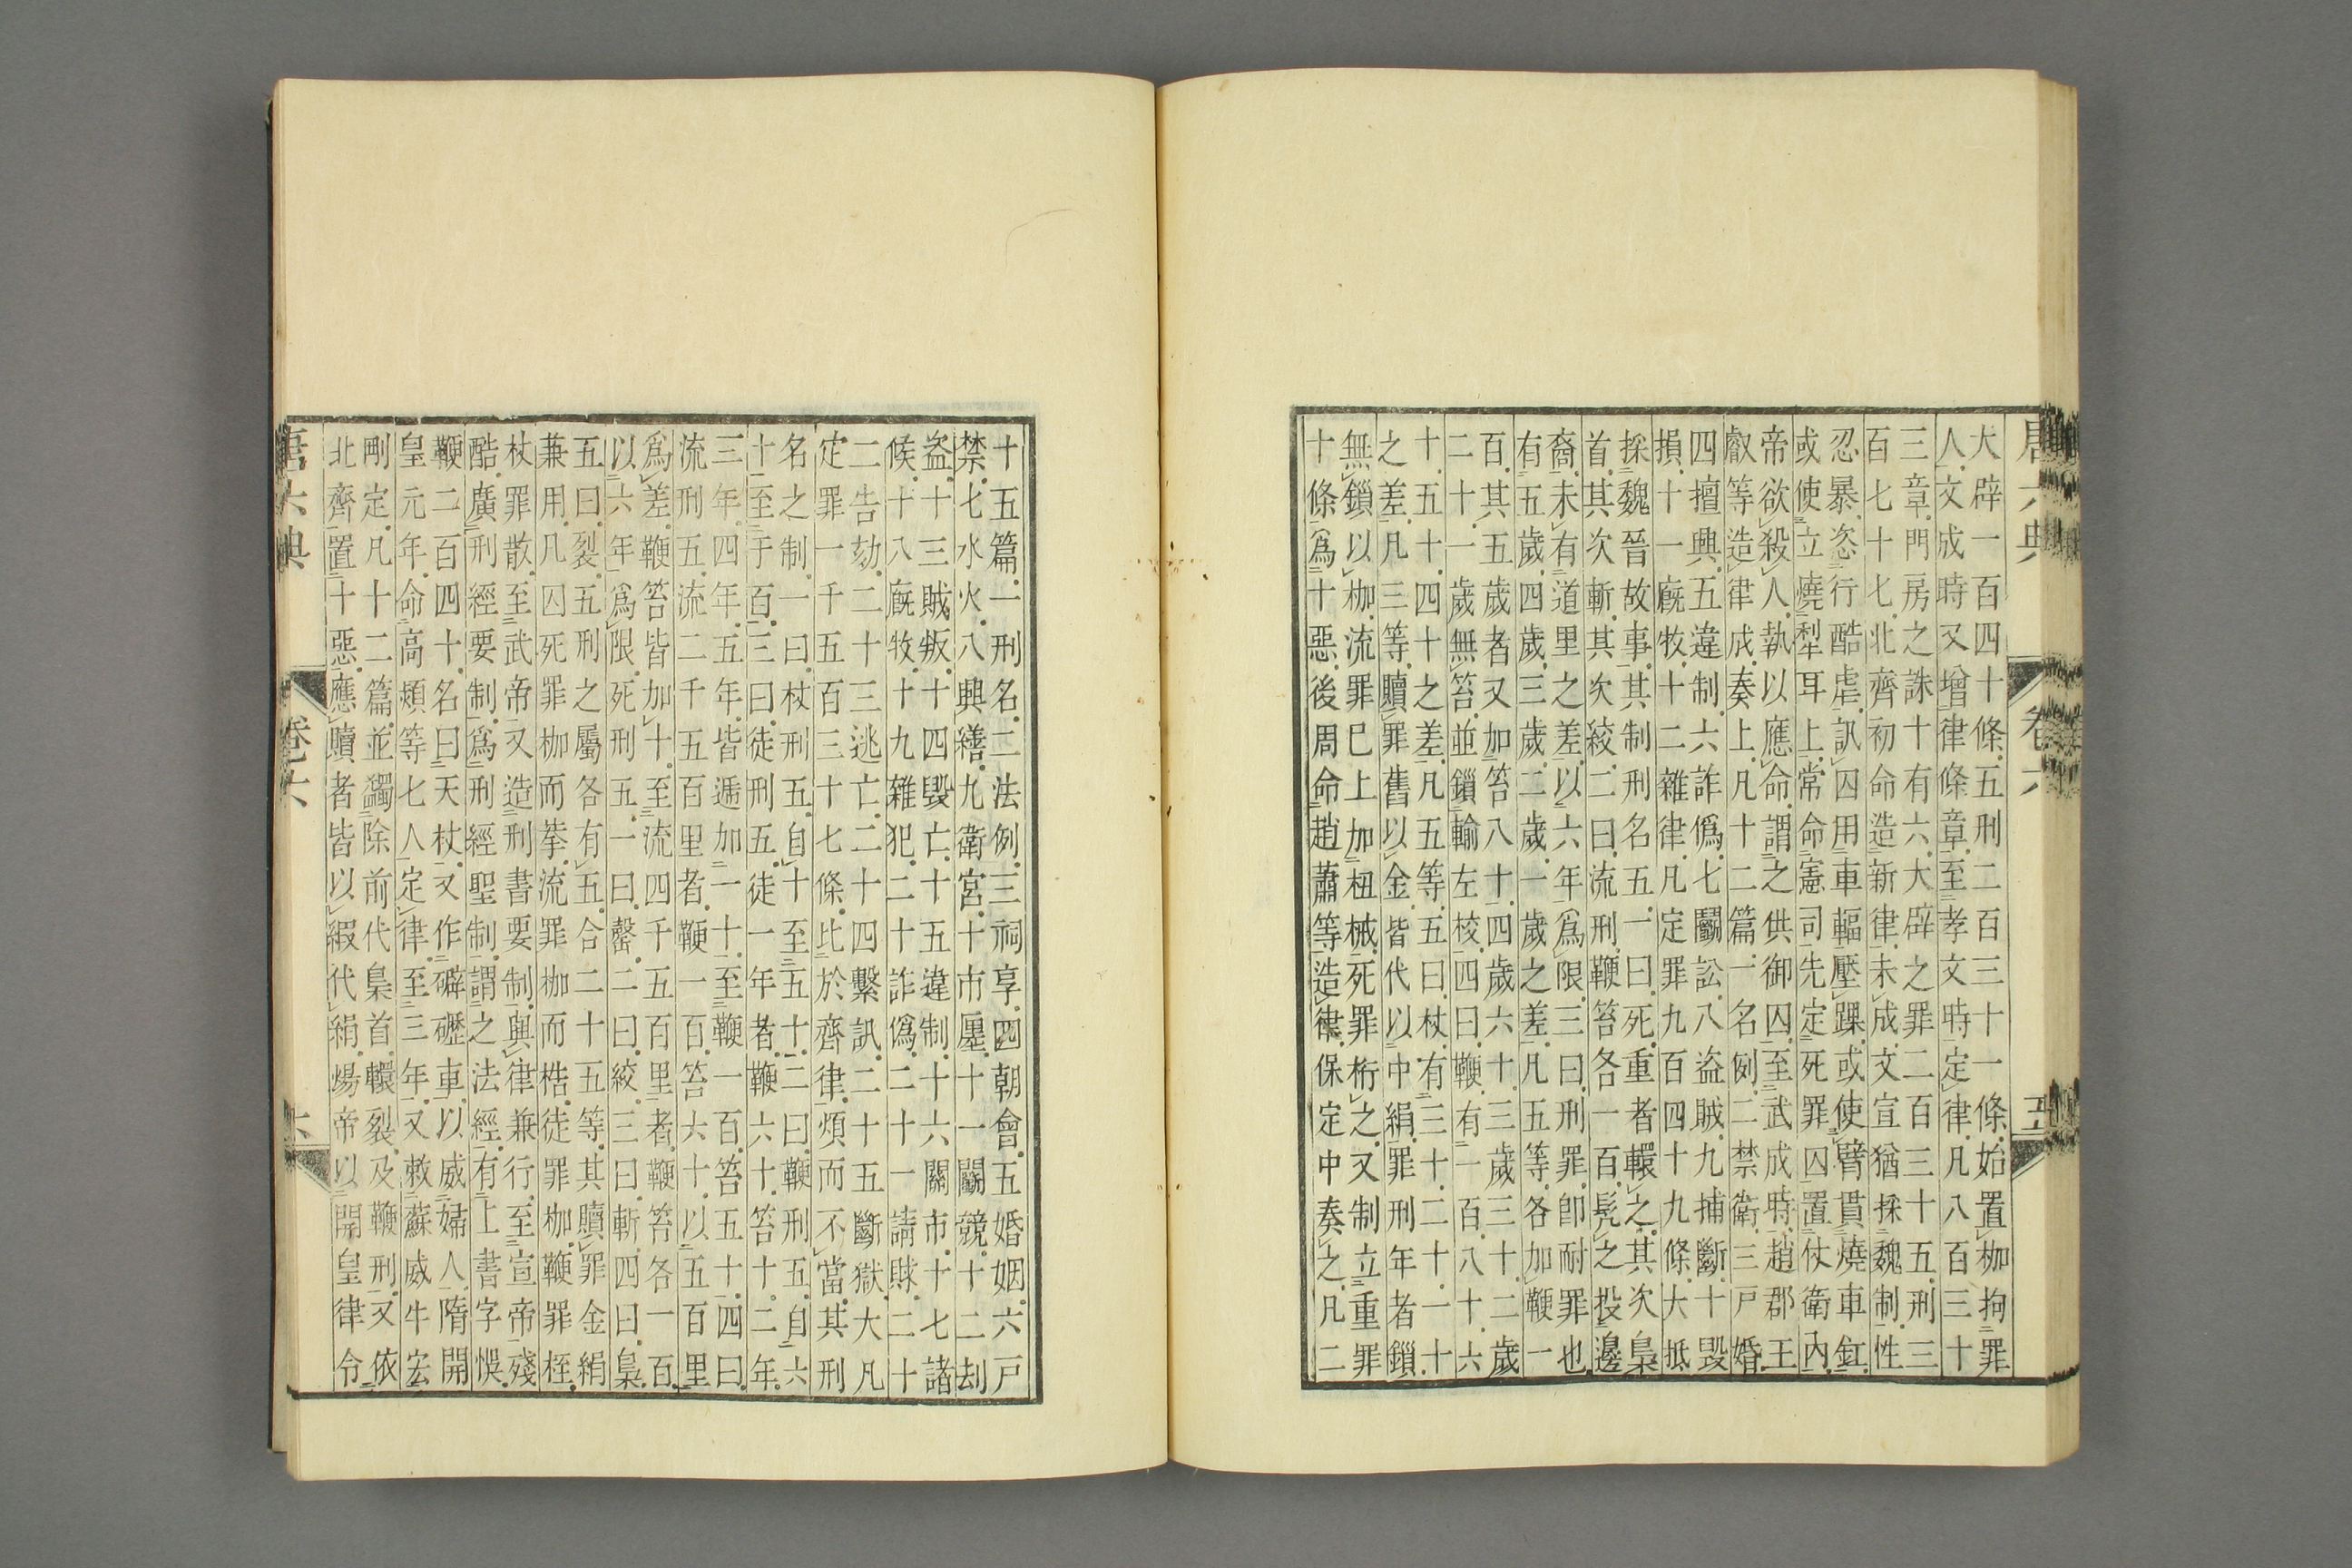 唐六典 卷六 五
大辟一百四十條五刑二百三十一條始置枷拘罪
人文成時又增律條章至孝文時定律凡八百三十
三章門房之誅十有六大辟之罪二百三十五刑三
百七十七北齊初命造新律未成文宣猶採魏制性
忍暴恣行酷虐訊囚用車輻壓踝或使臂貫燒車釭
或使立燒犁耳上常命憲司先定死罪囚置仗衛內
帝欲殺人執以應命謂之供御囚至武成時趙郡王
叡等造律成奏上凡十二篇一名例二禁衛三戶婚
四擅興五違制六詐僞七鬭訟八盜賊九捕斷十毀
損十一廐牧十二雜律凡定罪九百四十九條大抵
採魏晉故事其制刑名五一曰死重者轘之其次梟
首其次斬其次絞二曰流刑鞭笞各一百髡之投邊
裔未有道里之差以六年爲限三曰刑罪卽耐罪也
有五歲四歲三歲二歲一歲之差凡五等各加鞭一
百其五歲者又加笞八十四歲六十三歲三十二歲
二十一歲無笞並鎖輸左校四曰鞭有一百八十六
十五十四十之差凡五等五曰杖有三十二十一十
之差凡三等贖罪舊以金皆代以中絹罪刑年者鎖
無鎖以枷流罪已上加杻械死罪桁之又制立重罪
十條爲十惡後周命趙肅等造律保定中奏之凡二
十五篇一刑名二法例三祠享四朝會五婚姻六戶
禁七水火八興繕九衛宮十市廛十一鬭競十二刦
盜十三賊叛十四毀亡十五違制十六關市十七諸
候十八廐牧十九雜犯二十詐僞二十一請賕二十
二告劾二十三逃亡二十四繫訊二十五斷獄大凡
定罪一千五百三十七條比於齊律煩而不當其刑
名之制一曰杖刑五自十至五十二曰鞭刑五自六
十至于百三曰徒刑五徒一年者鞭六十笞十二年
三年四年五年皆遞加一十至鞭一百笞五十四曰
流刑五流二千五百里者鞭一百笞六十以五百里
爲差鞭笞皆加十至流四千五百里者鞭笞各一百
以六年爲限死刑五一曰罄二曰絞三曰斬四曰梟
五曰裂五刑之屬各有五合二十五等其贖罪金絹
兼用凡囚死罪枷而拲流罪枷而梏徒罪枷鞭罪桎
杖罪散至武帝又造刑書要制與律兼行至宣帝殘
酷廣刑經要制爲刑經聖制謂之法經有上書字悞
鞭二百四十名曰天杖又作礔礰車以威婦人隋開
皇元年命高熲等七人定律至三年又敕蘇威牛宏
剛定凡十二篇並蠲除前代梟首轘裂及鞭刑又依
北齊置十惡應贖者皆以緞代絹煬帝以開皇律令
唐六典 卷六 六